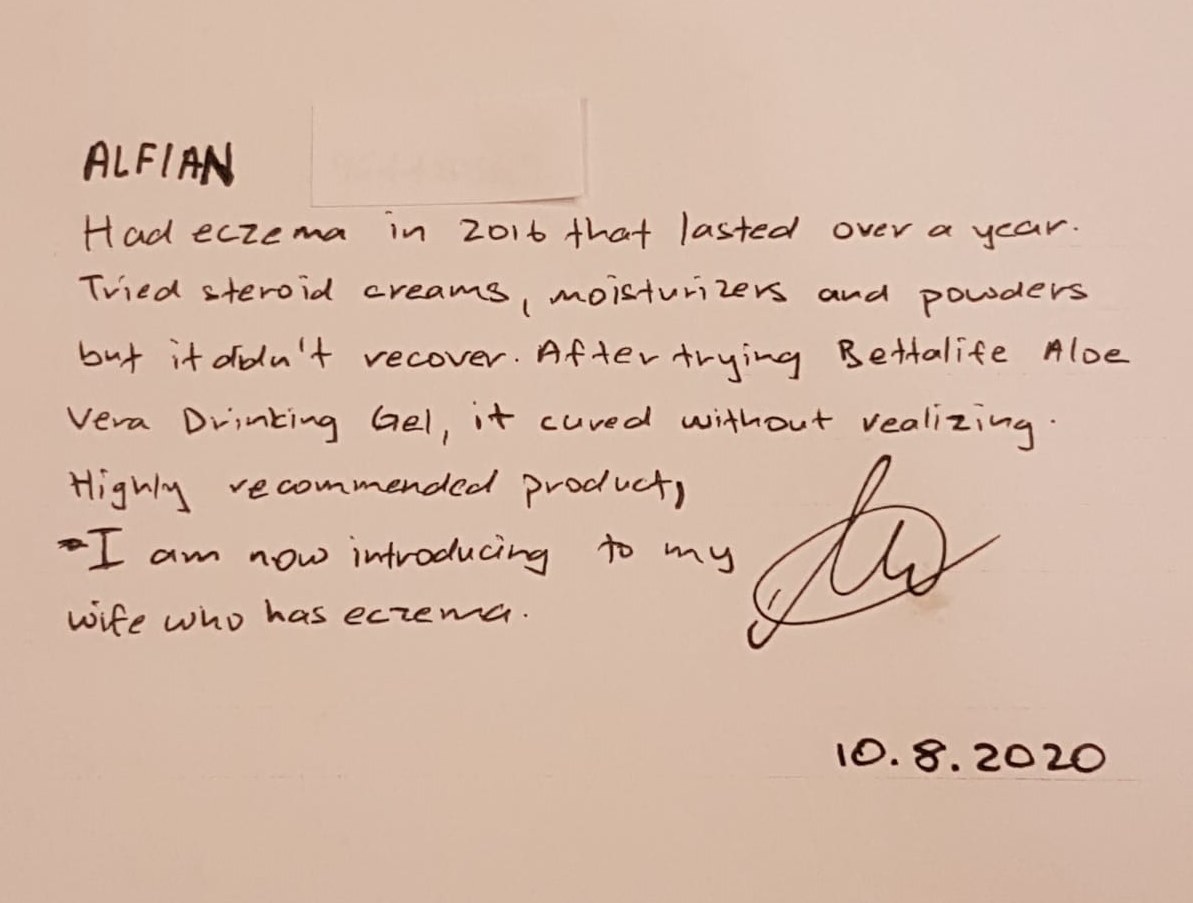 ALFIAN
Had eczema in 2016 that lasted over a year.
Tried steroid creams, moisturizers and powders
but it didn't recover. After trying Bettalife Aloe
Vera Drinking Gel, it cured without realizing.
Highly recommended product,
I am now introducing to my
wife who has eczema.
10.8.2020